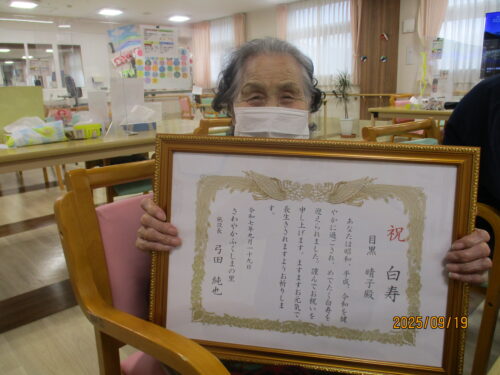 祝 白寿
目黒 晴子殿
あなたは昭和、平成、令和を健
やかに過ごされ、めでたく白寿を
迎えられました。謹んでお祝いを
申し上げます。ますますお元気で
長生きされますようお祈りしま
す。
令和七年九月一九日
さわやかふくしまの里
施設長 弓田 純也
2025/09/19